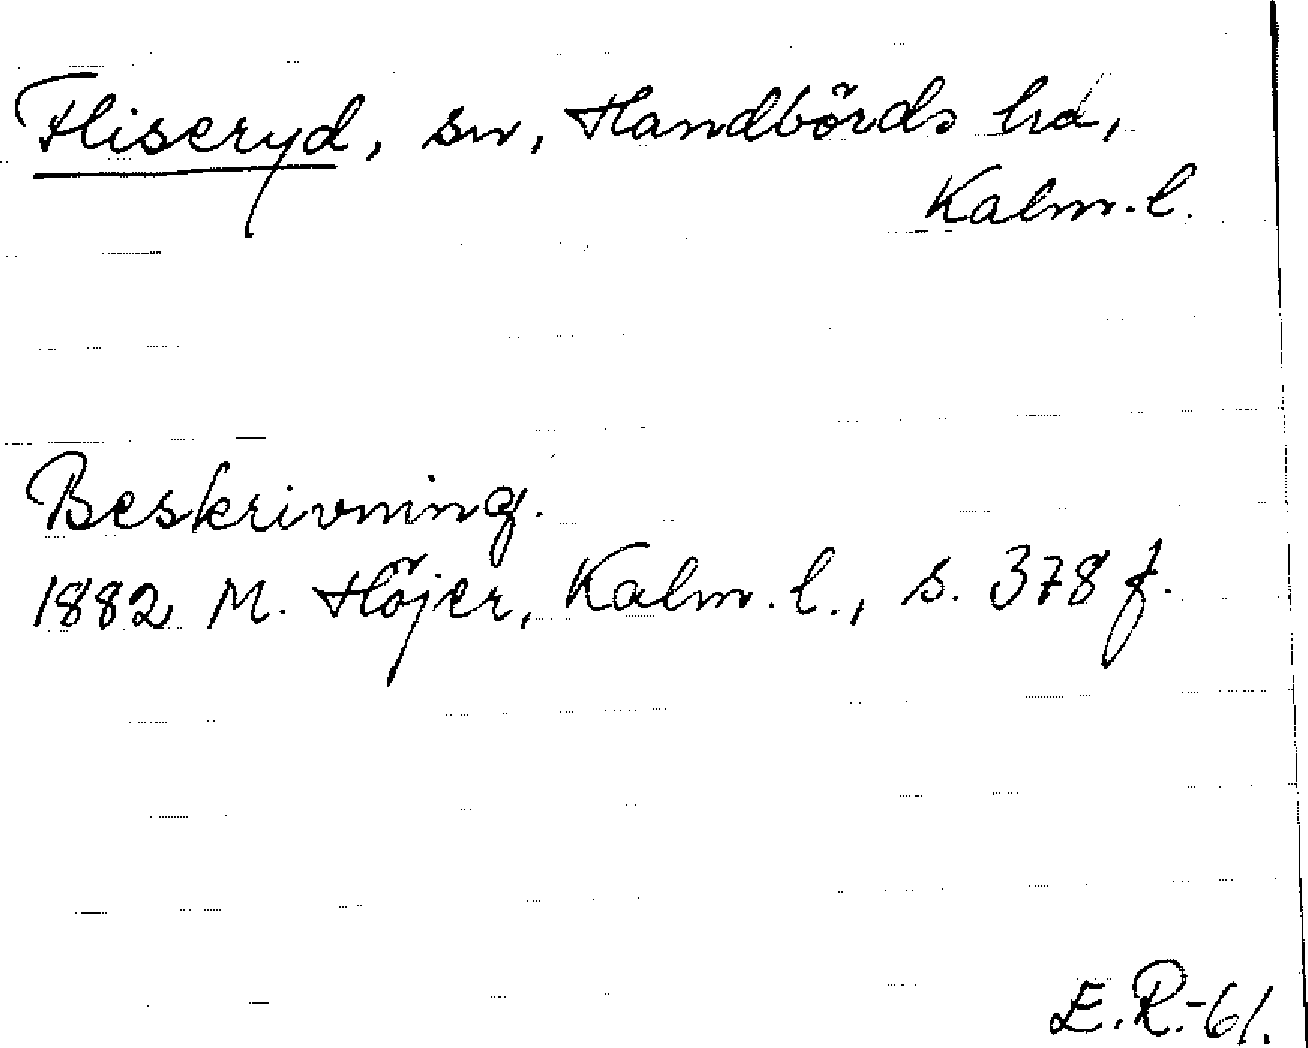 Fliseryd, sn, Handbörds hd,
Kalm. l.
Beskrivning.
1882 M. Höjer, Kalm. l., s. 378 f.
E.R.-61.